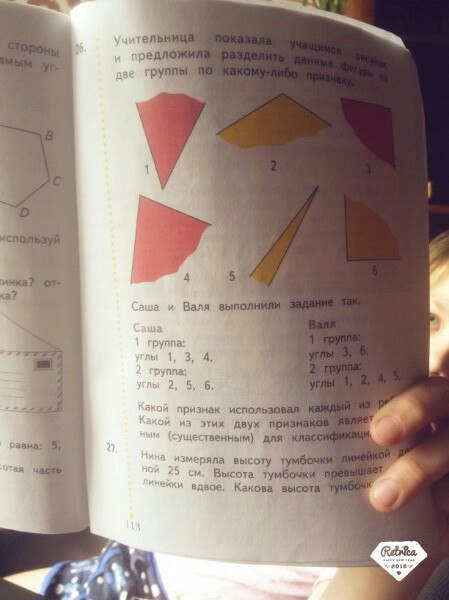 стороны
ямым уг-
B
C
D
используй
жинка? от-
ка?
равна: 5,
сотая часть
26.
Учительница показала учащимся рисунок
и предложила разделить данные фигуры на
две группы по какому-либо признаку.
1
2
3
4
5
6
Саша и Валя выполнили задание так.
Саша
1 группа:
углы 1, 3, 4.
2 группа:
углы 2, 5, 6.
Валя
1 группа:
углы 3, 6.
2 группа:
углы 1, 2, 4, 5.
Какой признак использовал каждый из ре
Какой из этих двух признаков является
ным (существенным) для классификаци
27.
Нина измеряла высоту тумбочки линейкой
ной 25 см. Высота тумбочки превышает
линейки вдвое. Какова высота тумбочк
113
Retrica
HAPPY NEW YEAR
2015